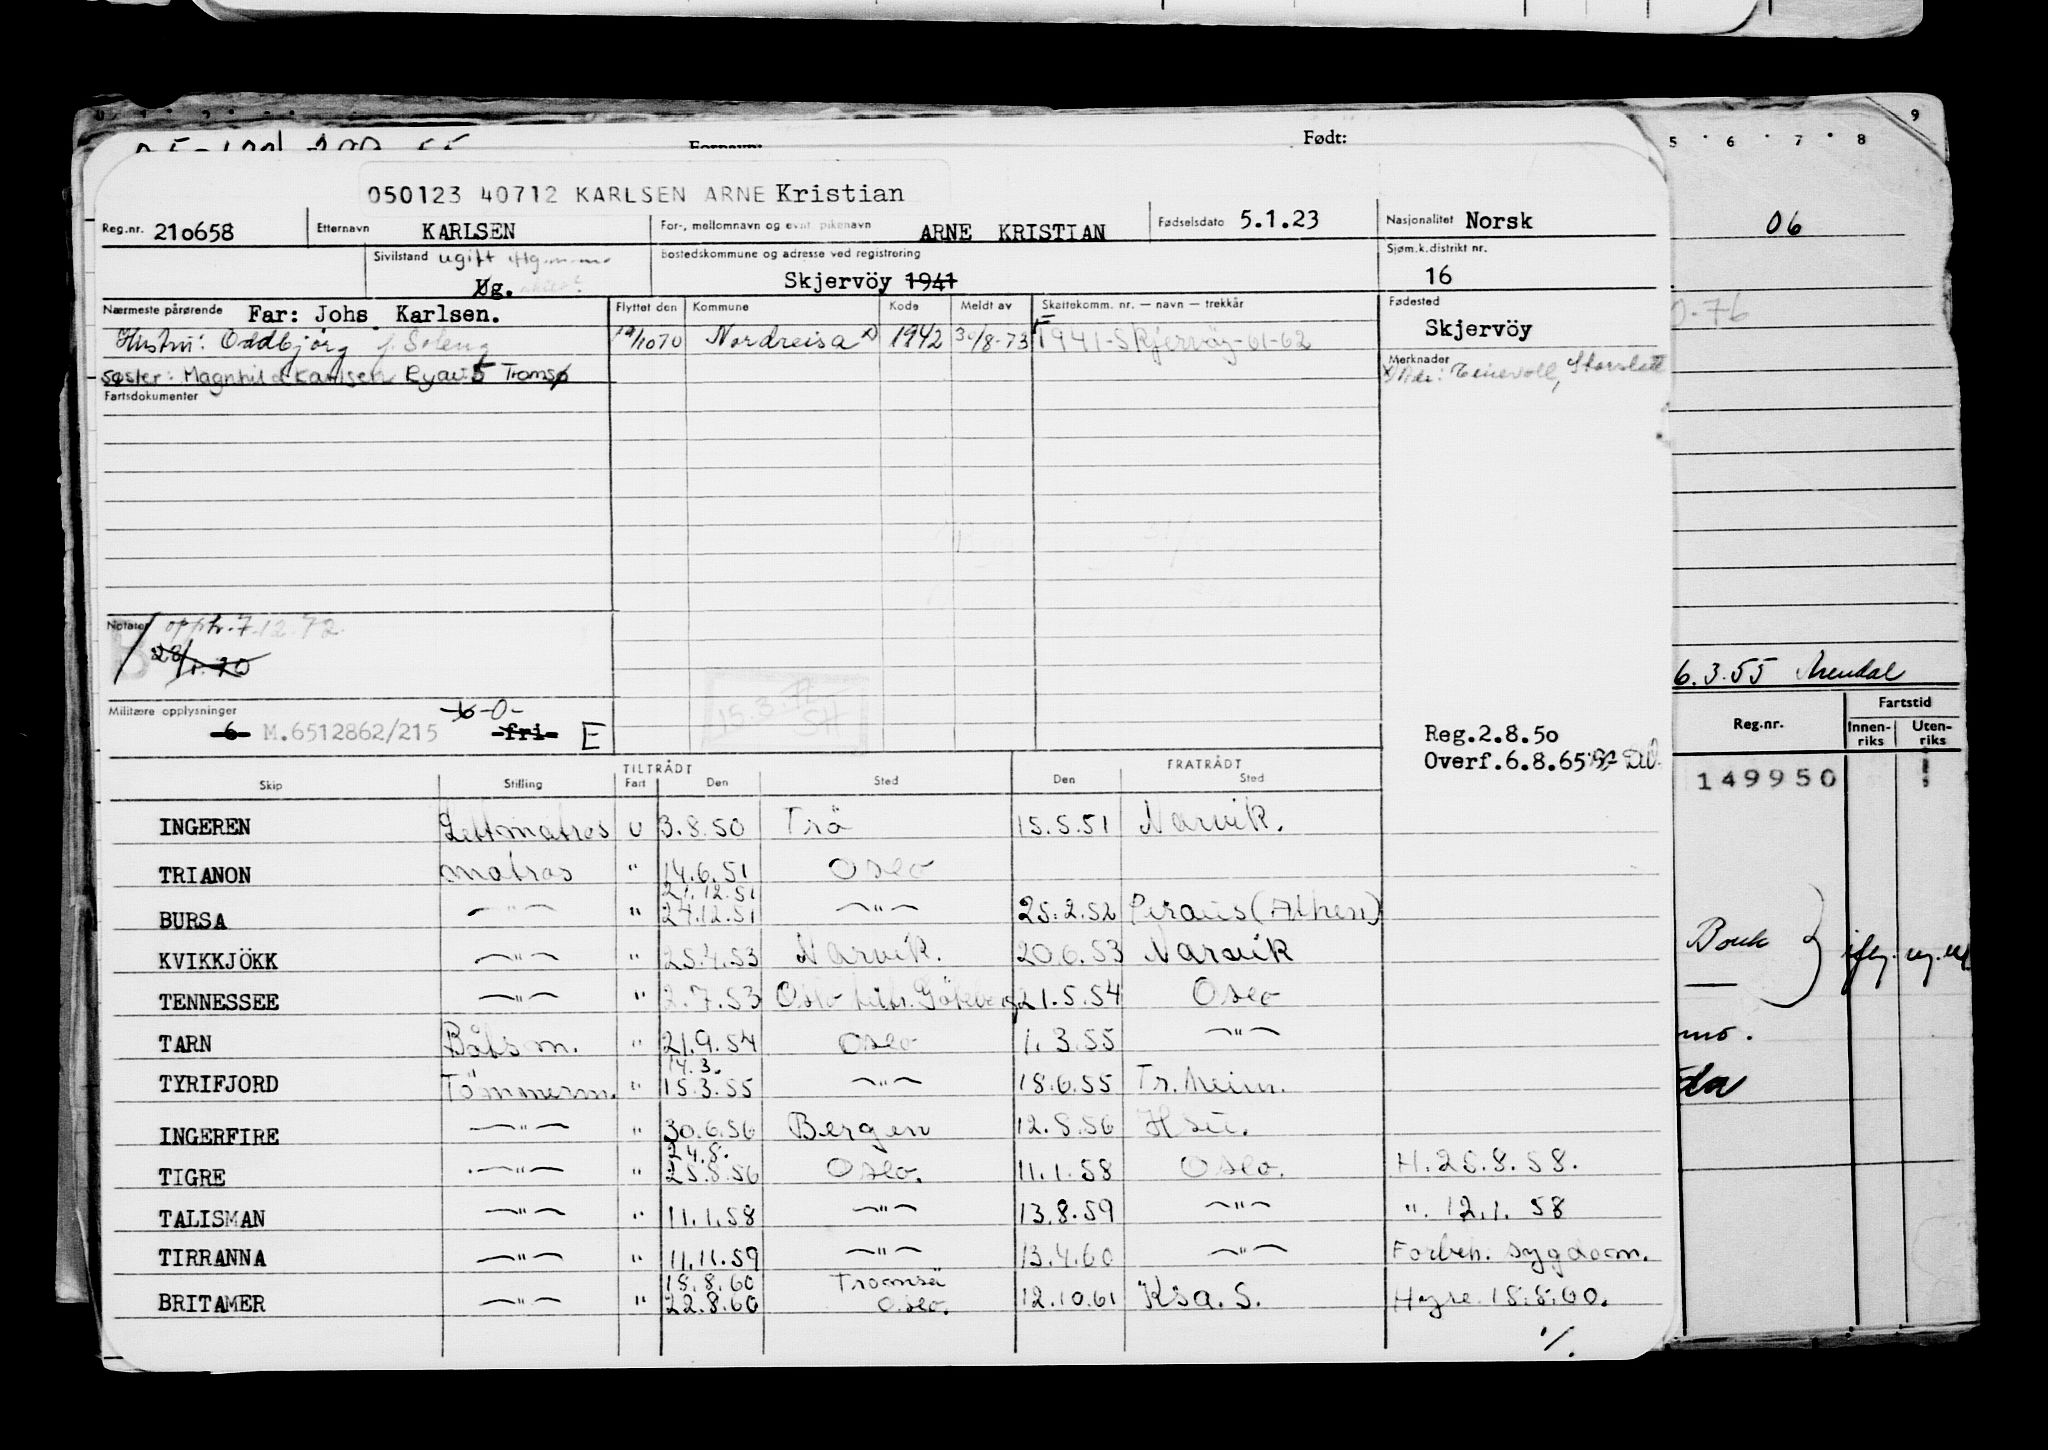 9
5 6 7 8
Fornavn: Født:
050123 40712 KARLSEN ARNE Kristian
Reg.nr. 210658 Etternavn KARLSEN For-, mellomnavn og evnt. pikenavn ARNE KRISTIAN Fødselsdato 5.1.23 Nasjonalitet Norsk
06
Sivilstand ugift Bostedskommune og adresse ved registrering Sjøm.k.distrikt nr.
Ug. Skjervöy 1941 16
Nærmeste pårørende Far: Johs. Karlsen. Flyttet den Kommune Kode Meldt av Skattekomm. nr. — navn — trekkår Fødested
Skjervöy
Hustru: Oddbjörg f. Soleng 19/10 70 Nordreisa x) 1942 30/8-73 1941-Skjervöy-61-62
Merknader
x) Adr: Storslett
Søster: Magnhild Karlsen Tromsø
Fartsdokumenter
Notater opph. 7.12.72
6.3.55 Arendal
Militære opplysninger -0-
-6- M.6512862/215 -fri- E
15.3.
Reg.2.8.50
Overf.6.8.65
Reg.nr. Fartstid
Innen-riks Uten-riks
149950
Skip Stilling TILTRÅDT Fart Den Sted FRATRÅDT Den Sted
INGEREN Lettmatros U 3.8.50 Trå 15.5.51 Narvik.
TRIANON matros " 14.6.51 Oslo
21.12.51
BURSA —"— " 24.12.51 —"— 25.2.52 Piraus (Athen)
KVIKKJÖKK —"— " 25.4.53 Narvik. 20.6.53 Narvik
TENNESSEE —"— " 2.7.53 Oslo 21.5.54 Oslo
TARN Båtsm. " 21.9.54 Oslo 1.3.55 —"—
14.3.
TYRIFJORD Tömmerm. " 15.3.55 —"— 18.6.55 Tr.heim.
INGERFIRE —"— " 30.6.56 Bergen 12.8.56
24.8.
TIGRE —"— " 25.8.56 Oslo. 11.1.58 Oslo. H. 25.8.58.
TALISMAN —"— " 11.1.58 —"— 13.8.59 —"— ". 12.1.58
TIRRANNA —"— " 11.11.59 —"— 13.4.60 —"— Forbeh. sygdom.
18.8.60 Tromsö
BRITAMER —"— " 22.8.60 Oslo. 12.10.61 Kr.sa.S. Hyre 18.8.60.